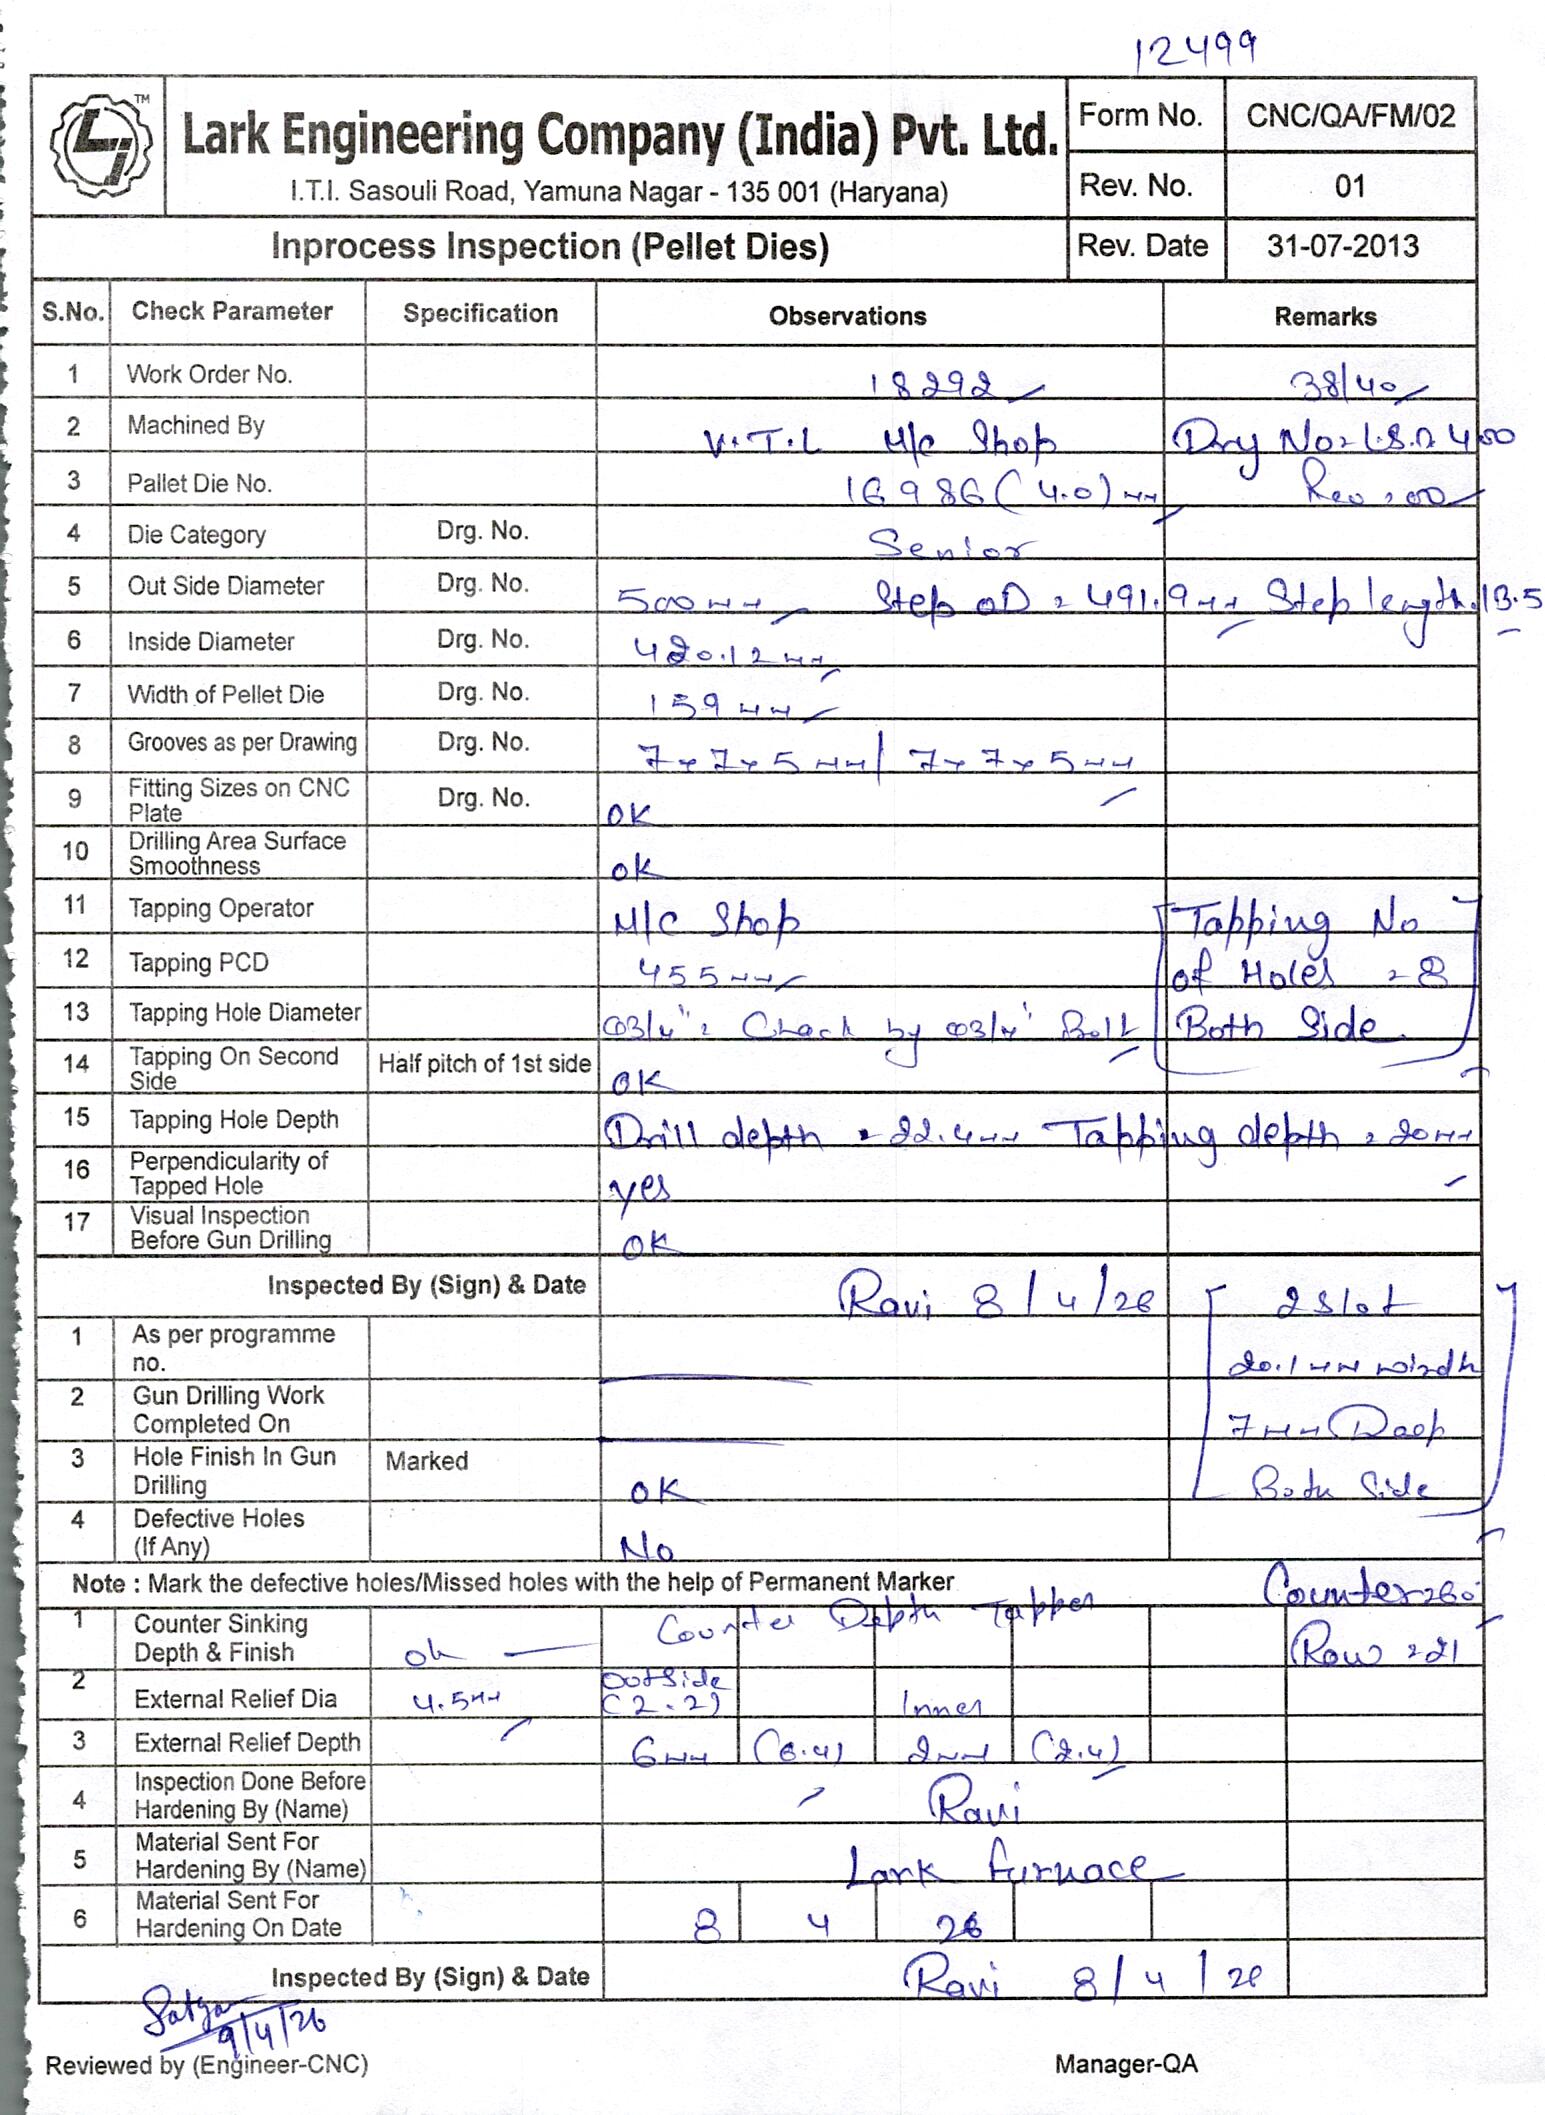 12499
TM
Lark Engineering Company (India) Pvt. Ltd.
I.T.I. Sasouli Road, Yamuna Nagar - 135 001 (Haryana)
Form No. CNC/QA/FM/02
Rev. No. 01
Inprocess Inspection (Pellet Dies) Rev. Date 31-07-2013
S.No. Check Parameter Specification Observations Remarks
1 Work Order No. 18292 38/40
2 Machined By V.T.L M/c Shop
3 Pallet Die No. 16986 (4.0) mm Rev = 00
4 Die Category Drg. No. Senior
5 Out Side Diameter Drg. No. 500mm Step OD = 491.9mm Step length. 13.5
6 Inside Diameter Drg. No. 420.12mm
7 Width of Pellet Die Drg. No. 159mm
8 Grooves as per Drawing Drg. No. 7x7x5mm/ 7x7x5mm
9 Fitting Sizes on CNC Plate Drg. No. OK
10 Drilling Area Surface Smoothness OK
11 Tapping Operator M/c Shop Tapping No
12 Tapping PCD 455mm of Holes = 8
13 Tapping Hole Diameter Ø3/4" = Check by Ø3/4" Bolt Both Side
14 Tapping On Second Side Half pitch of 1st side OK
15 Tapping Hole Depth Drill depth = 22.4mm Tapping depth = 20mm
16 Perpendicularity of Tapped Hole yes
17 Visual Inspection Before Gun Drilling OK
Inspected By (Sign) & Date Ravi 8/4/26 2 Slot
1 As per programme no. 20.1mm width
2 Gun Drilling Work Completed On 7mm Deep
3 Hole Finish In Gun Drilling Marked OK Both Side
4 Defective Holes (If Any) No
Note : Mark the defective holes/Missed holes with the help of Permanent Marker
1 Counter Sinking Depth & Finish ok Counter Depth Tapper Row = 21
2 External Relief Dia 4.5mm Outside (2.2) Inner
3 External Relief Depth 6mm (6.4) 2mm (2.4)
4 Inspection Done Before Hardening By (Name) Ravi
5 Material Sent For Hardening By (Name) Lark furnace
6 Material Sent For Hardening On Date 8 4 26
Inspected By (Sign) & Date Ravi 8/4/26
Satya
9/4/26
Reviewed by (Engineer-CNC) Manager-QA